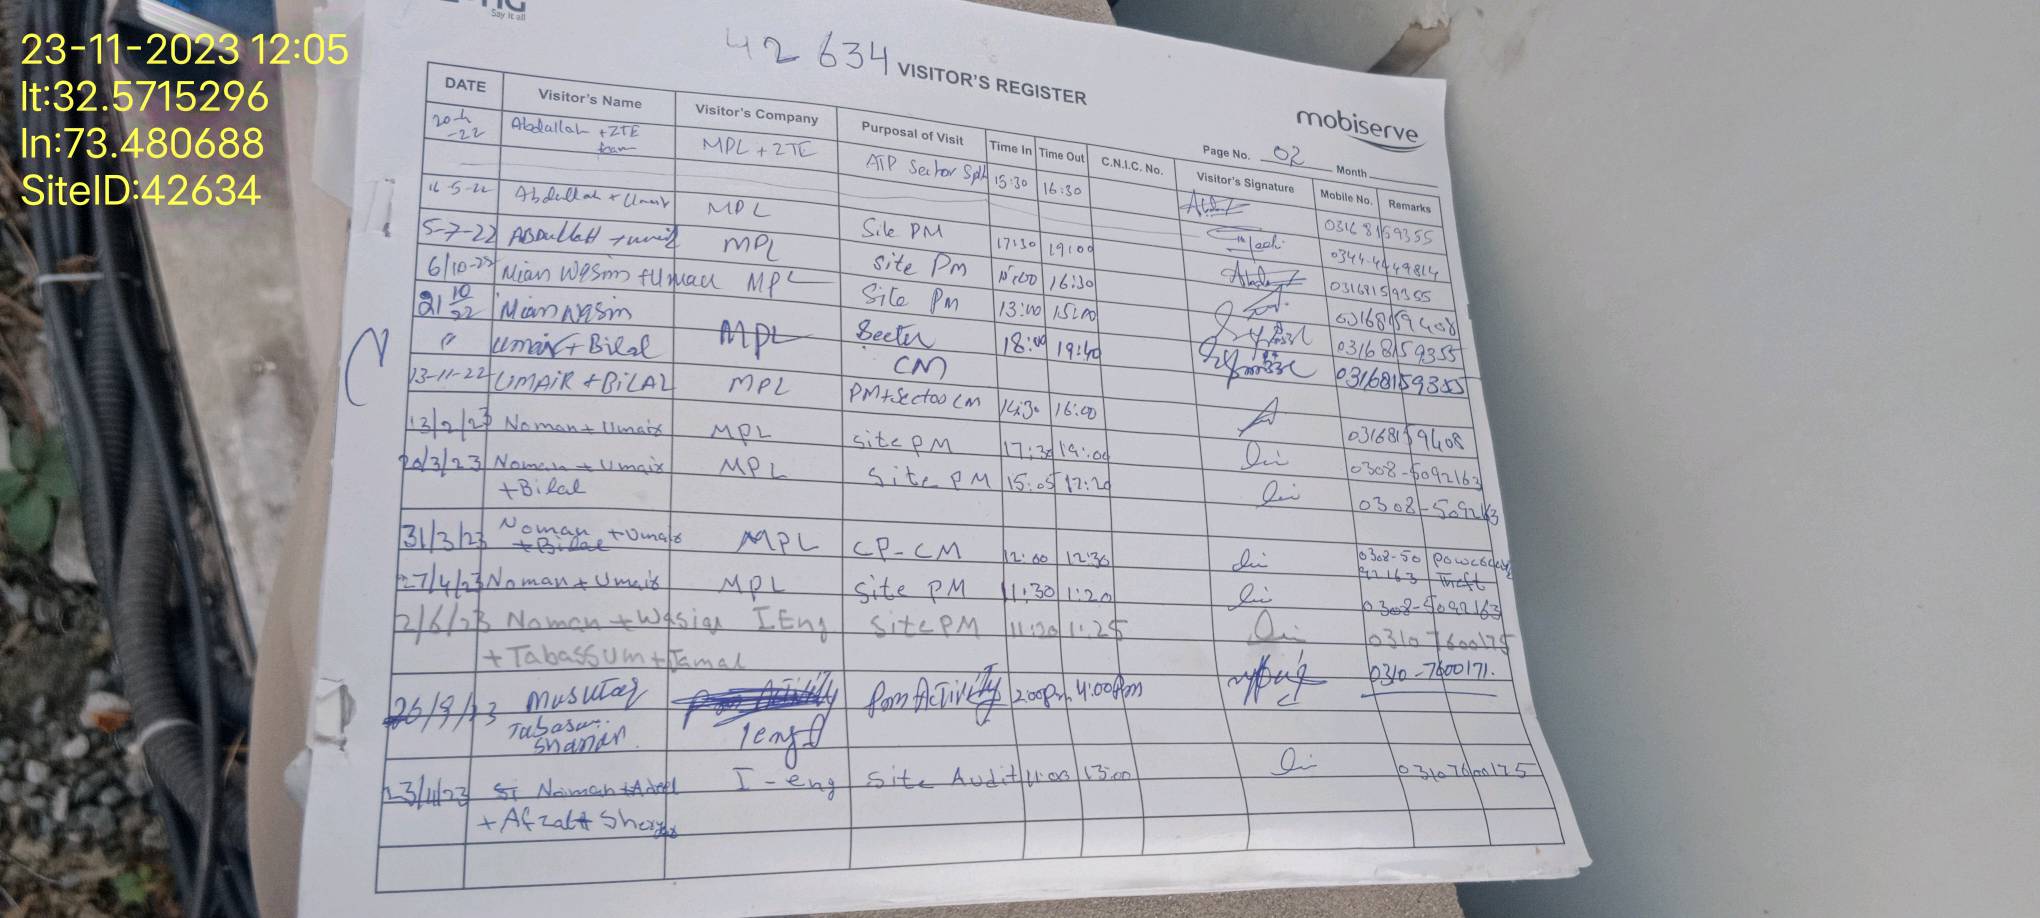 Say it all
23-11-2023 12:05
lt:32.5715296
ln:73.480688
SiteID:42634
42 634 VISITOR'S REGISTER
mobiserve
Page No. 02 Month
DATE Visitor's Name Visitor's Company Purposal of Visit Time In Time Out C.N.I.C. No. Visitor's Signature Mobile No. Remarks
-22 Abdallah + ZTE MPL + ZTE ATP Sector Split 15:30 16:30 03168159355
team
Abdullah + Umair MPL Site PM 17:30 19:00 0344-4449814
5-7-22 Abdullah + umair MPL Site Pm 16:30 03168159355
6/10-22 Mian Wasim + Umair MPL Site Pm 13:00 15:00 03168159408
21 10/22 Mian Wasim MPL Secter 18:00 19:40 03168159355
" Umair + Bilal CM 03168159355
13-11-22 UMAIR + BiLAL MPL PM+Sector CM 14:30 16:00 03168159408
13/2/23 Noman + Umair MPL site PM 17:30 19:00 0308-5092163
20/3/23 Noman + Umair MPL Site PM 15:05 17:20 0308-5092163
+ Bilal
31/3/23 Noman + Umair MPL CP-CM 12:00 12:30 0308-50
+ Bilal 92163 Theft
27/4/23 Noman + Umair MPL Site PM 11:30 1:20 0308-5092163
2/6/23 Noman + Wasiq I Eng Site PM 11:20 1:25 03107600175
+ Tabassum + Jamal
26/9/23 Mushtaq Pm Activity 2:00pm 4:00pm 0310-7600171.
Tabasum Ieng
23/11/23 Noman + Adeel I-eng Site Audit 11:00 13:00 03107600175
+ Afzal +